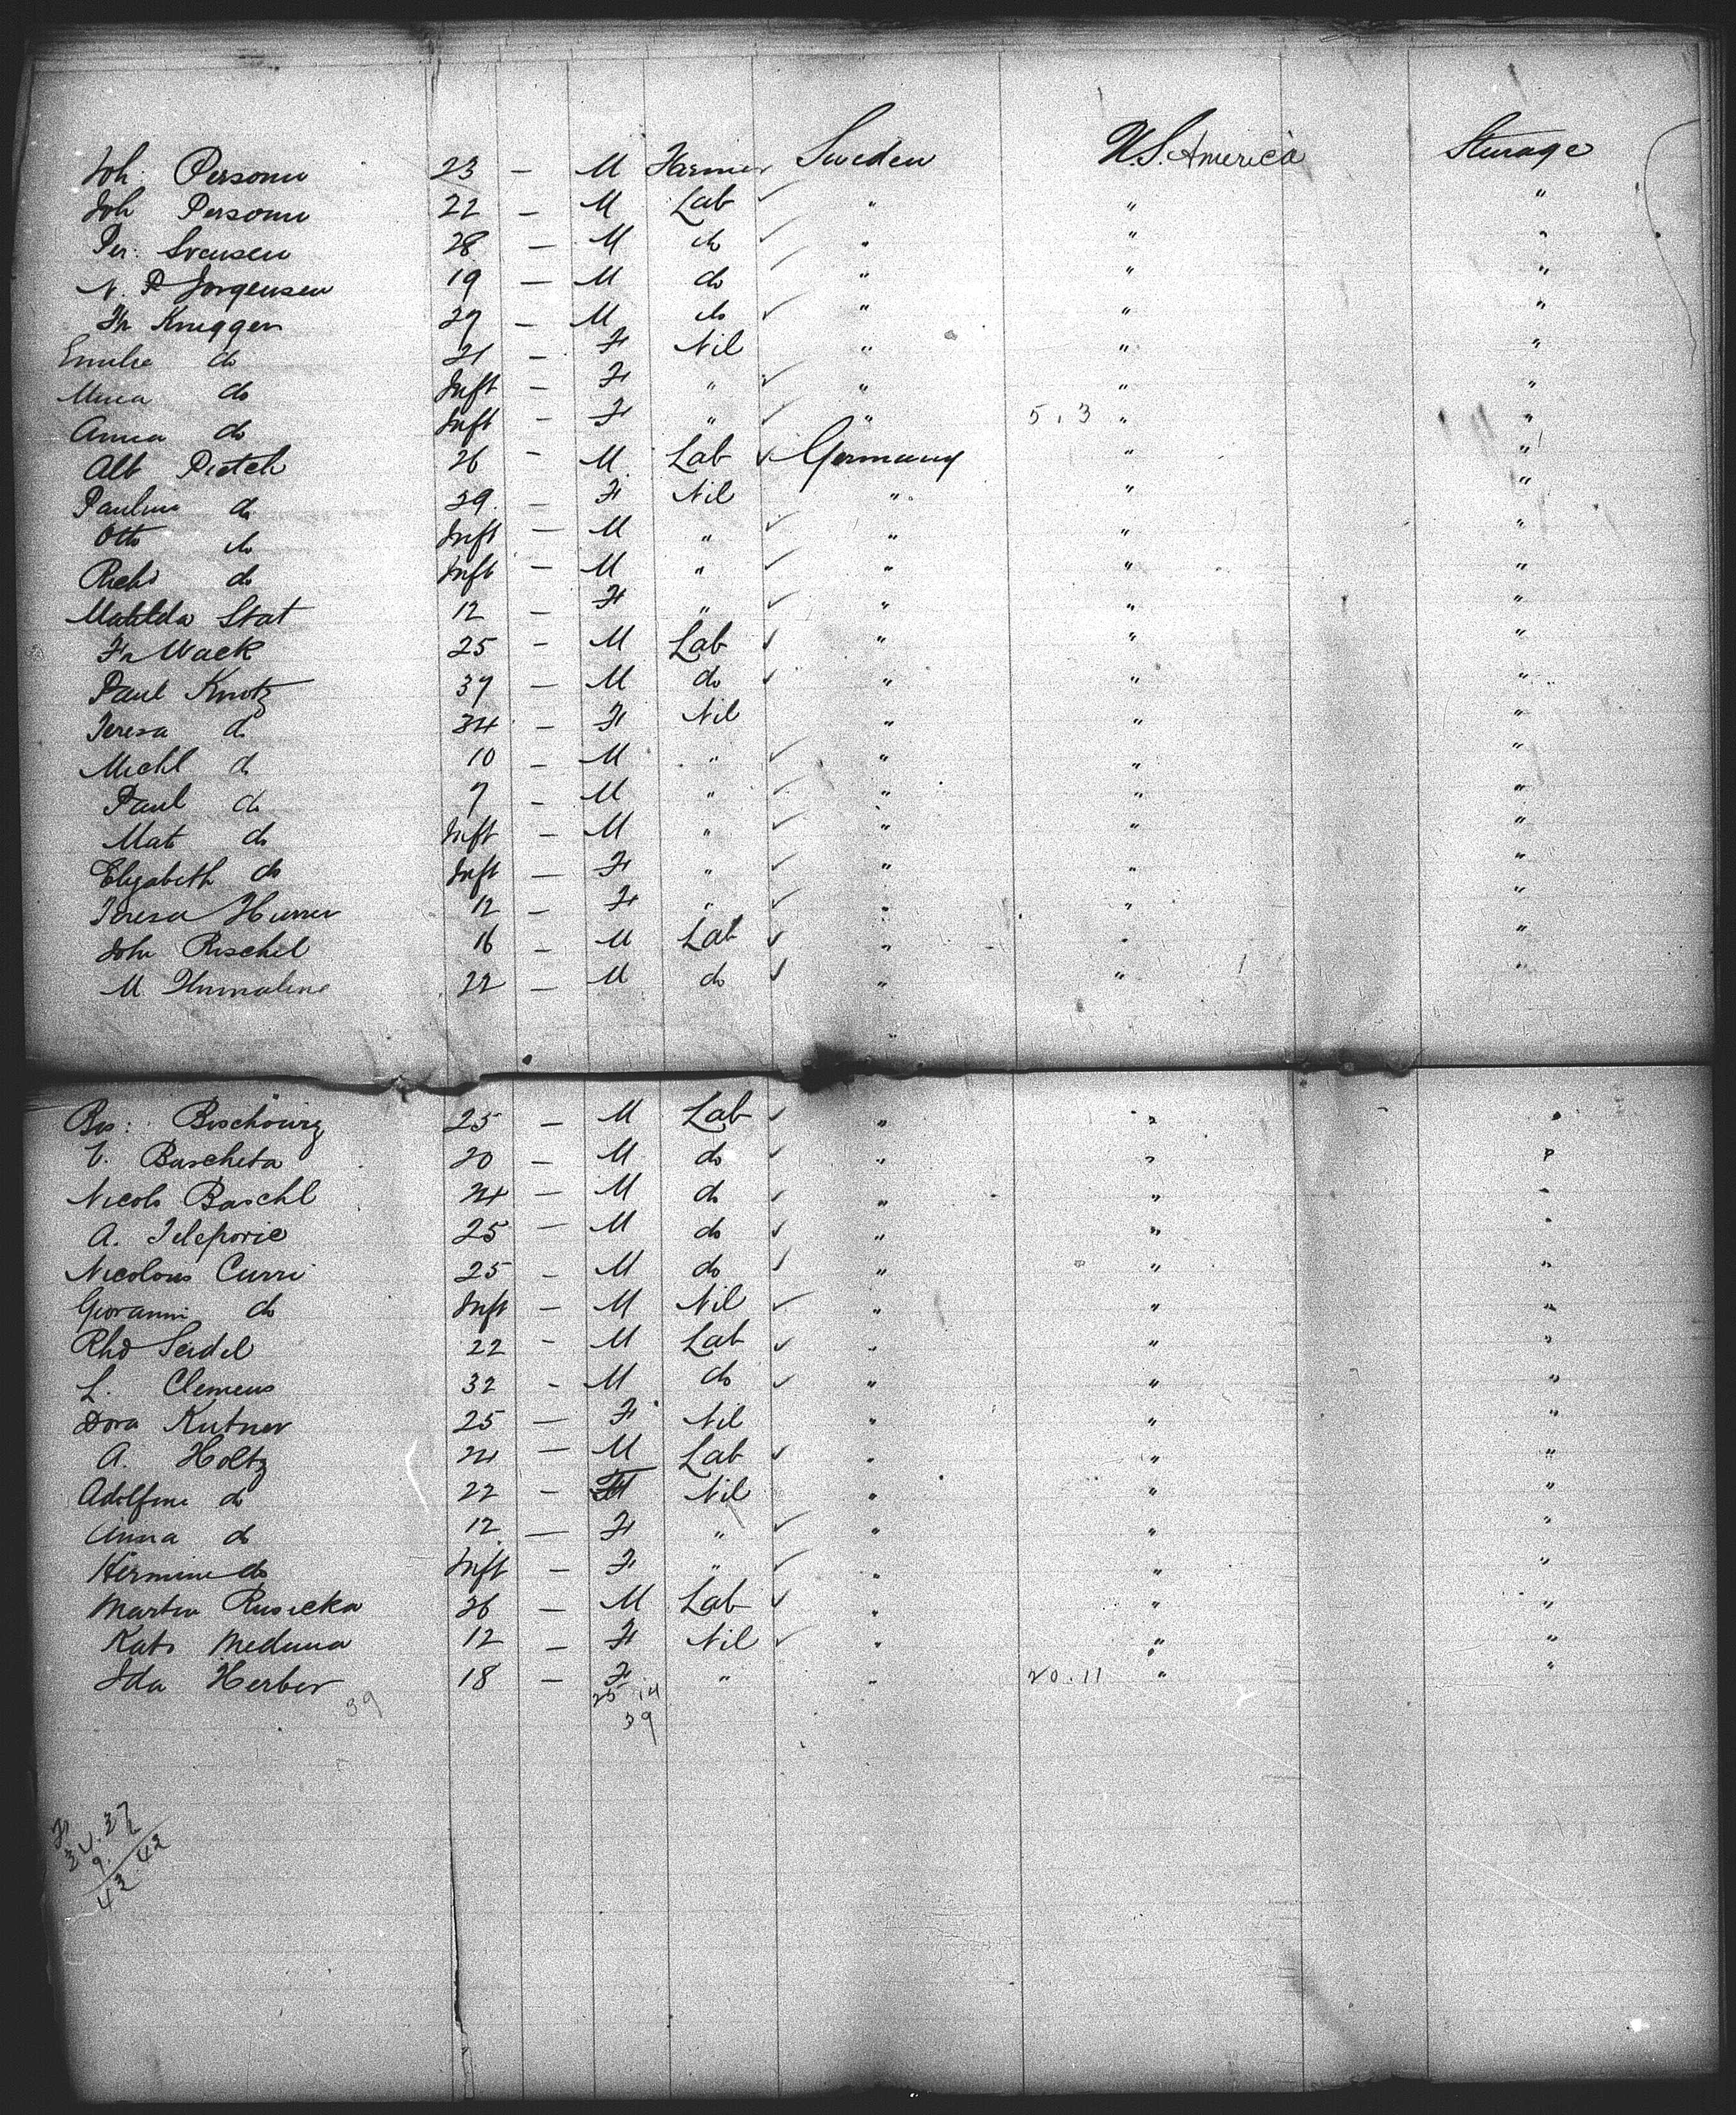 Joh: Personn 23 — M Farmer Sweden U.S. America Sturage
Joh Personn 22 — M Lab ✓ " " "
Per: Svensen 28 — M do ✓ " " "
N. P Jorgensen 19 — M do " " "
Fr Knugger 27 — M do ✓ " " "
Emilie do 21 — F Nil " " "
do Inft — F " ✓ " " "
Anna do Inft — F " ✓ " 5.3 " "
Alb Pietch 26 — M Lab ✓ Germany " "
Pauline do 29 — F Nil " " "
Otto do Inft — M " ✓ " " "
Richd do Inft — M " ✓ " " "
Matilda Stat 12 — F " ✓ " " "
Fr Wack 25 — M Lab ✓ " " "
Paul Knotz 37 — M do ✓ " " "
Teresa do 34 — F Nil " " "
Michl do 10 — M " ✓ " " "
Paul do 7 — M " ✓ " " "
Mat do Inft — M " ✓ " " "
Elizabeth do Inft — F " ✓ " " "
Teresa Hurrer 12 — F " ✓ " " "
John Rischel 16 — M Lab ✓ " " "
M. 22 — M do ✓ " " "
25 — M Lab ✓ " " "
V. Bascheta 20 — M do ✓ " " "
Nicolo Baschl 24 — M do ✓ " " "
A. Teleporie 25 — M do ✓ " " "
Nicolous Curri 25 — M do ✓ " " "
Giovanni do Inft — M Nil ✓ " " "
Rhd Seidel 22 — M Lab ✓ " " "
L. Clemens 32 — M do ✓ " " "
Dora Kutner 25 — F Nil " " "
A. Holtz 24 — M Lab ✓ " " "
Adolfine do 22 — Nil " " "
Anna do 12 — F " ✓ " " "
Hermine do Inft — F " ✓ " " "
Martin Rusicka 26 — M Lab ✓ " " "
Kati Meduna 12 — F Nil ✓ " " "
Ida Herber 18 — F " " 20.11 " "
39 25 14
39
9. 42
43